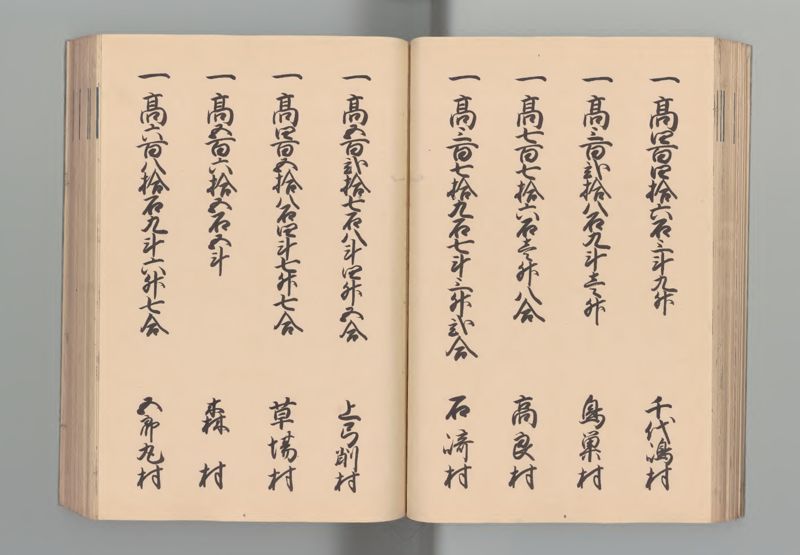 一 高四百四拾六石三斗九升 千代嶋村
一 高三百弐拾八石九斗壱升 鳥巣村
一 高七百七拾六石壱升八合 高良村
一 高三百七拾九石七斗三升弐合 石崎村
一 高五百弐拾七石八斗四升五合 上弓削村
一 高四百五拾八石四斗七升七合 草場村
一 高五百六拾五石五斗 森村
一 高六百八拾石九斗六升七合 五郎丸村